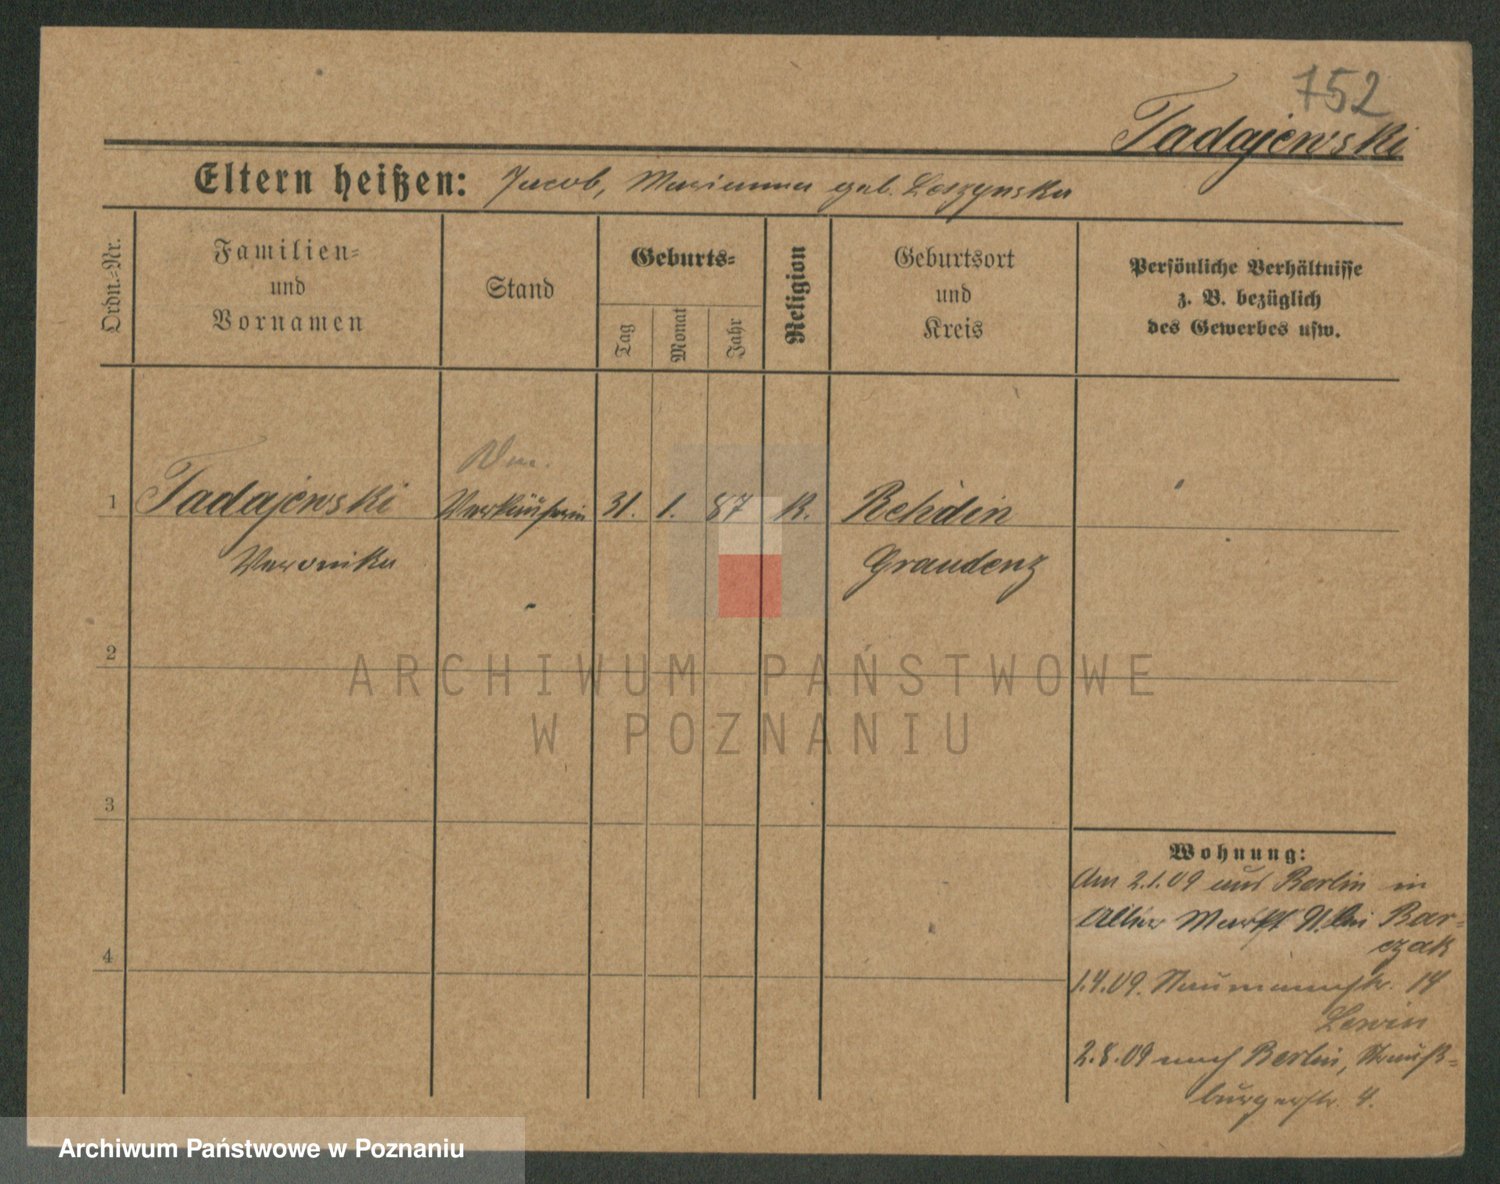 752
Tadajewski
Eltern heißen: Jacob, Marianna geb. Loszynska
Ordn.-Nr.
Familien-
und
Vornamen
Stand
Geburts-
Tag
Monat
Jahr
Religion
Geburtsort
und
Kreis
Persönliche Verhältnisse
z. B. bezüglich
des Gewerbes usw.
1 Tadajewski Verkäuferin 31. 1. 87 K. Rehdin
Veronika Graudenz
2
3
4
Wohnung:
Am 2.1.09 aus Berlin in
Alter Markt 91. bei Bar-
czak
1.4.09. Naumannstr. 14
Lewin
2.8.09 nach Berlin, Strauß-
burgerstr. 4.
ARCHIWUM PAŃSTWOWE
W POZNANIU
Archiwum Państwowe w Poznaniu